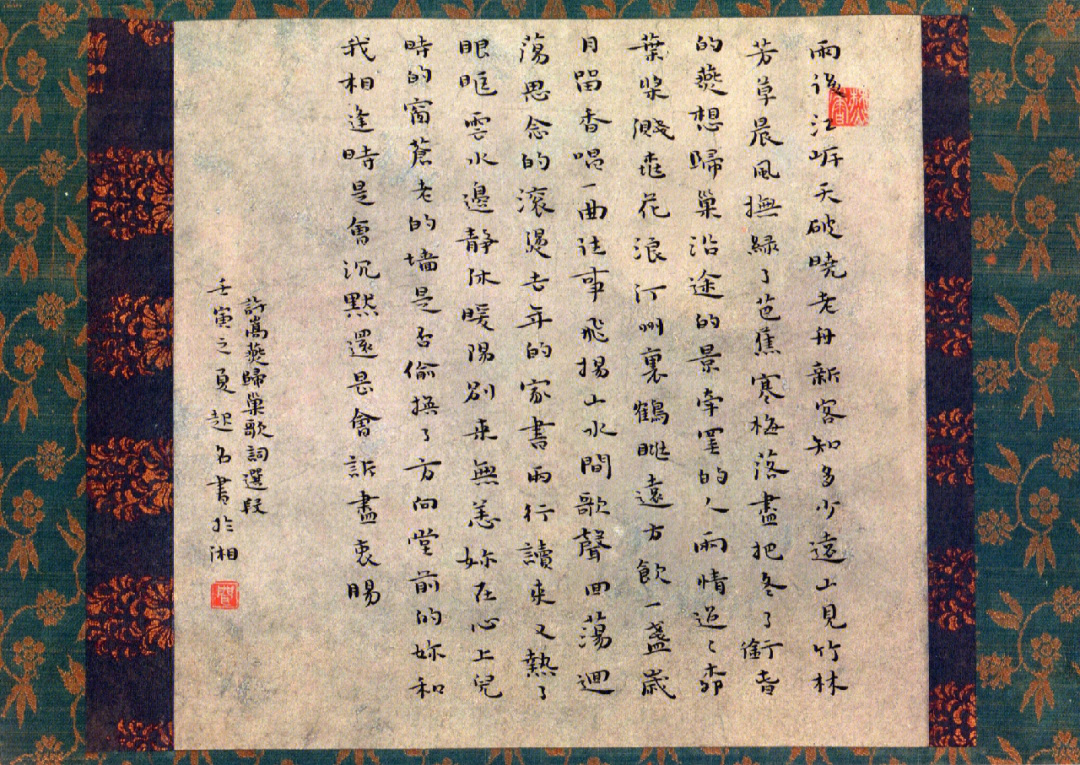 雨後江岍天破曉老舟新客知多少遠山見竹林
芳草晨風撫緑了芭蕉寒梅落盡把冬了銜春
的燕想歸巢沿途的景牽罣的人兩情迢〻茆
葉槳濺桃花浪汀州裏鶴眺遠方飲一盞歲
月留香唱一曲往事飛揚山水間歌聲回蕩迴
蕩思念的滾燙去年的家書兩行讀來又熱了
眼眶雲水邊靜沐暖陽別來無恙妳在心上兒
時的窗蒼老的墻是否偷換了方向堂前的妳和
我相逢時是會沉默還是會訴盡衷腸
許嵩燕歸巢歌詞選段
壬寅之夏起名書於湘